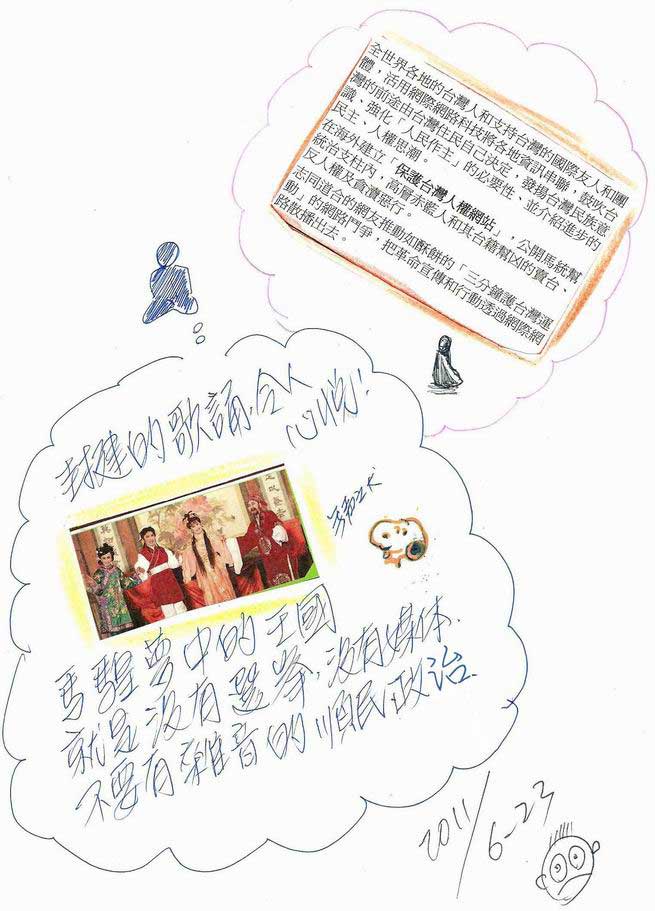 全世界各地的台灣人和支持台灣的國際友人和團
體，活用網際網路科技將各地資訊串聯，鼓吹台
灣的前途由台灣住民自己決定，發揚台灣民族意
識、強化「人民作主」的必要性、並介紹進步的
民主、人權思潮。
在海外建立「保護台灣人權網站」，公開馬統幫
統治支柱內，高層赤藍人和其台籍幫凶的賣台、
反人權及貪瀆惡行。
志同道合的網友推動如酥餅的「三分鐘護台灣運
動」的網路鬥爭，把革命宣傳和行動透過網際網
路散播出去。
封建的歌誦,令人
心悅!
馬騜夢中的王國
就是沒有選举,沒有媒体.
不要有雜音的順民政治.
2011/6-23